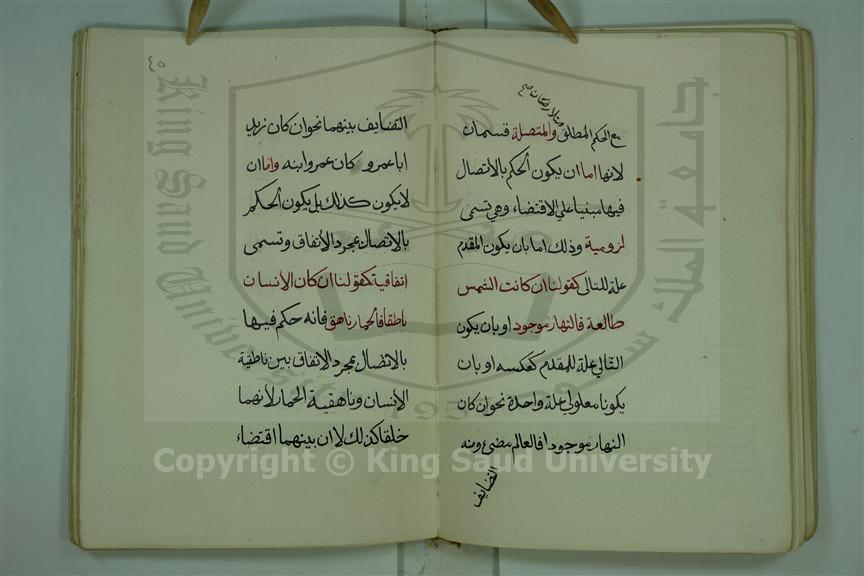 مع الحكم المطلق والمتصلة قسمان
لانها اما ان يكون الحكم بالاتصال
فيها مبنيا علي الاقتضاء وهي تسمى
لزومية وذلك اما بان يكون المقدم
علة للتالي كقولنا ان كانت الشمس
طالعة فالنهار موجود او بان يكون
التالي علة للمقدم كعكسه او بان
يكونا معلولي علة واحدة نحو ان كان
النهار موجودا فالعالم مضيء ومنه
التضايف
٤٥
التضايف بينهما نحو ان كان زيد
ابا عمرو كان عمرو ابنه واما ان
لا يكون كذلك بل يكون الحكم
بالاتصال بمجرد الاتفاق وتسمى
اتفاقية كقولنا ان كان الانسان
ناطقا فالحمار ناهق فانه حكم فيها
بالاتصال بمجرد الاتفاق بين ناطقية
الانسان وناهقية الحمار لأنهما
خلقا كذلك لا ان بينهما اقتضاء
جامعة الملك سعود
King Saud University
1957
Copyright © King Saud University